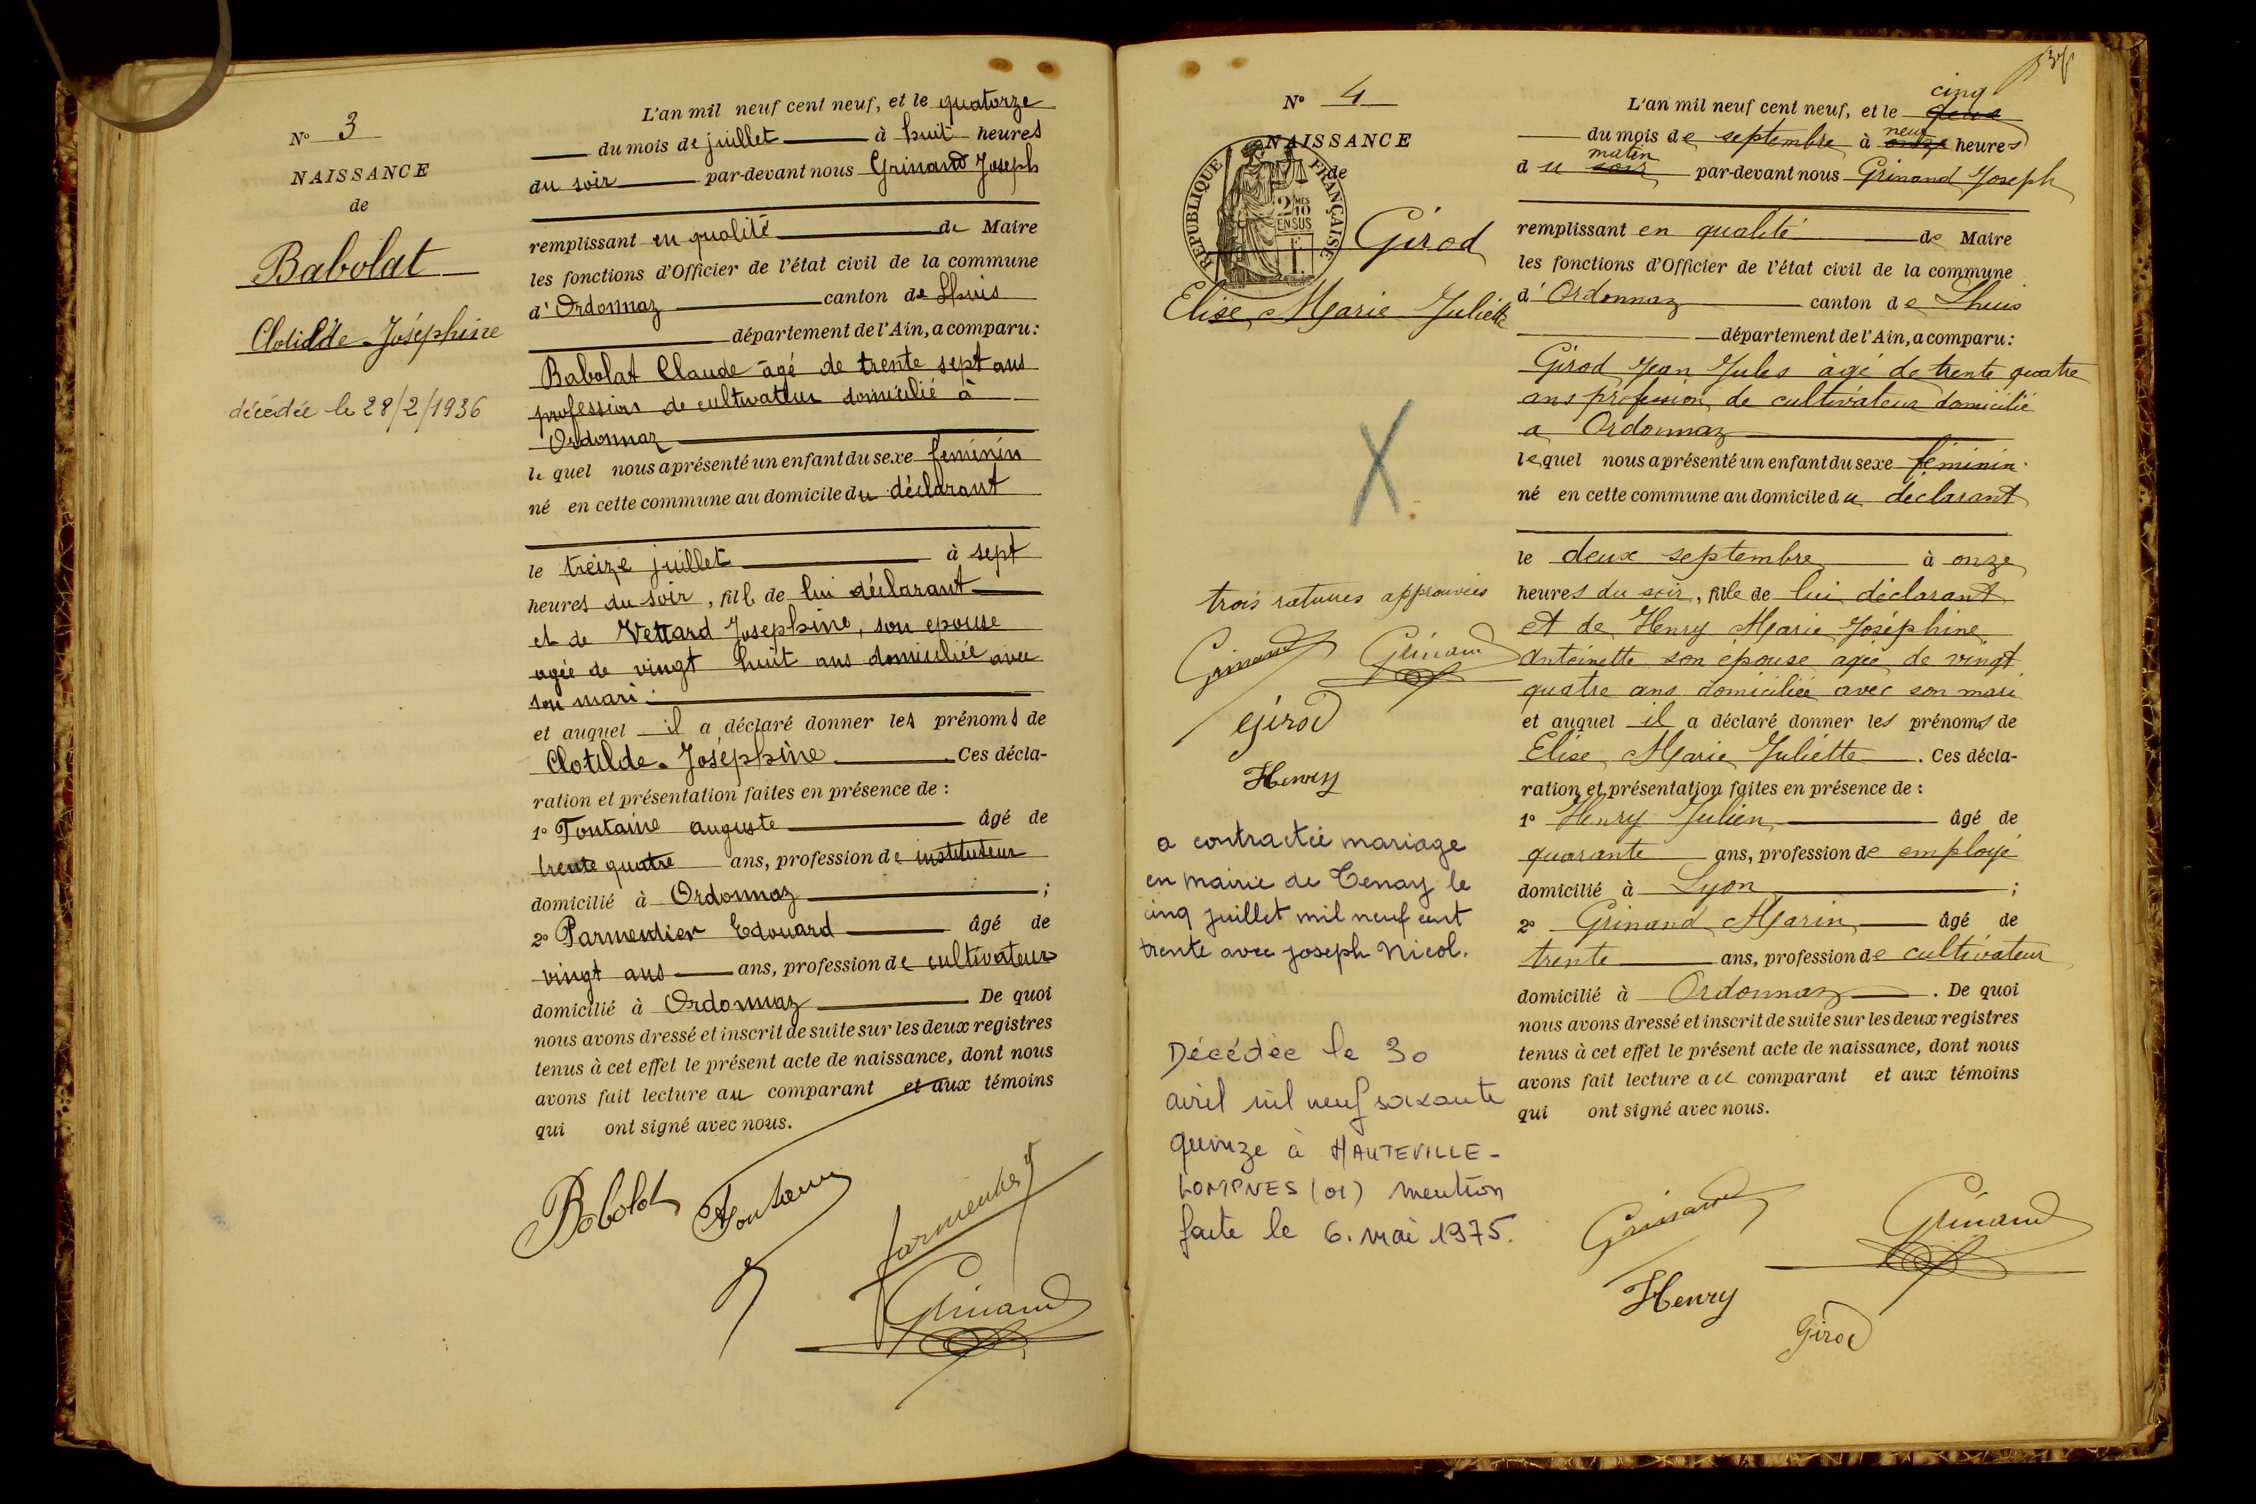 N° 3
NAISSANCE
de
Babolat
Clotilde Joséphine
décédée le 28/2/1936
L'an mil neuf cent neuf, et le quatorze
du mois de juillet à huit heures
du soir par-devant nous Grinand Joseph
remplissant en qualité de Maire
les fonctions d'Officier de l'état civil de la commune
d'Ordonnaz canton de Lhuis
département de l'Ain, a comparu:
Babolat Claude âgé de trente sept ans
profession de cultivateur domicilié à
Ordonnaz
le quel nous a présenté un enfant du sexe féminin
né en cette commune au domicile du déclarant
le treize juillet à sept
heures du soir, fille de lui déclarant
et de Vettard Josephine, son epouse
agée de vingt huit ans domiciliée avec
son mari.
et auquel il a déclaré donner les prénoms de
Clotilde Joséphine Ces décla-
ration et présentation faites en présence de :
1° Fontaine auguste âgé de
trente quatre ans, profession de instituteur
domicilié à Ordonnaz ;
2° Parmentier Edouard âgé de
vingt ans ans, profession de cultivateur
domicilié à Ordonnaz De quoi
nous avons dressé et inscrit de suite sur les deux registres
tenus à cet effet le présent acte de naissance, dont nous
avons fait lecture au comparant et aux témoins
qui ont signé avec nous.
Babolat Fontaine Parmentier
Grinand
N° 4
NAISSANCE
de
RÉPUBLIQUE FRANÇAISE
2 MES
10
EN SUS
Girod
Elise Marie Juliette
trois ratures approuvées
Grinand Grinand
Girod
Henry
a contractée mariage
en mairie de Tenay le
cinq juillet mil neuf cent
trente avec joseph Nicol.
Décédée le 30
avril mil neuf soixante
quinze à HAUTEVILLE-
LOMPNES (01) mention
faite le 6. mai 1975.
L'an mil neuf cent neuf, et le cinq
du mois de septembre à neuf onze heures
du matin soir par-devant nous Grinand Joseph
remplissant en qualité de Maire
les fonctions d'Officier de l'état civil de la commune
d'Ordonnaz canton de Lhuis
département de l'Ain, a comparu:
Girod Jean Jules âgé de trente quatre
ans profession de cultivateur domicilié
a Ordonnaz
lequel nous a présenté un enfant du sexe féminin.
né en cette commune au domicile du déclarant
le deux septembre à onze
heures du soir, fille de lui déclarant
et de Henry Marie Joséphine
Antoinette son épouse agée de vingt
quatre ans domiciliée avec son mari
et auquel il a déclaré donner les prénoms de
Elise Marie Juliette. Ces décla-
ration et présentation faites en présence de :
1° Henry Julien âgé de
quarante ans, profession de employé
domicilié à Lyon ;
2° Grinand Marin âgé de
trente ans, profession de cultivateur
domicilié à Ordonnaz. De quoi
nous avons dressé et inscrit de suite sur les deux registres
tenus à cet effet le présent acte de naissance, dont nous
avons fait lecture au comparant et aux témoins
qui ont signé avec nous.
Grinand Grinand
Henry
Girod